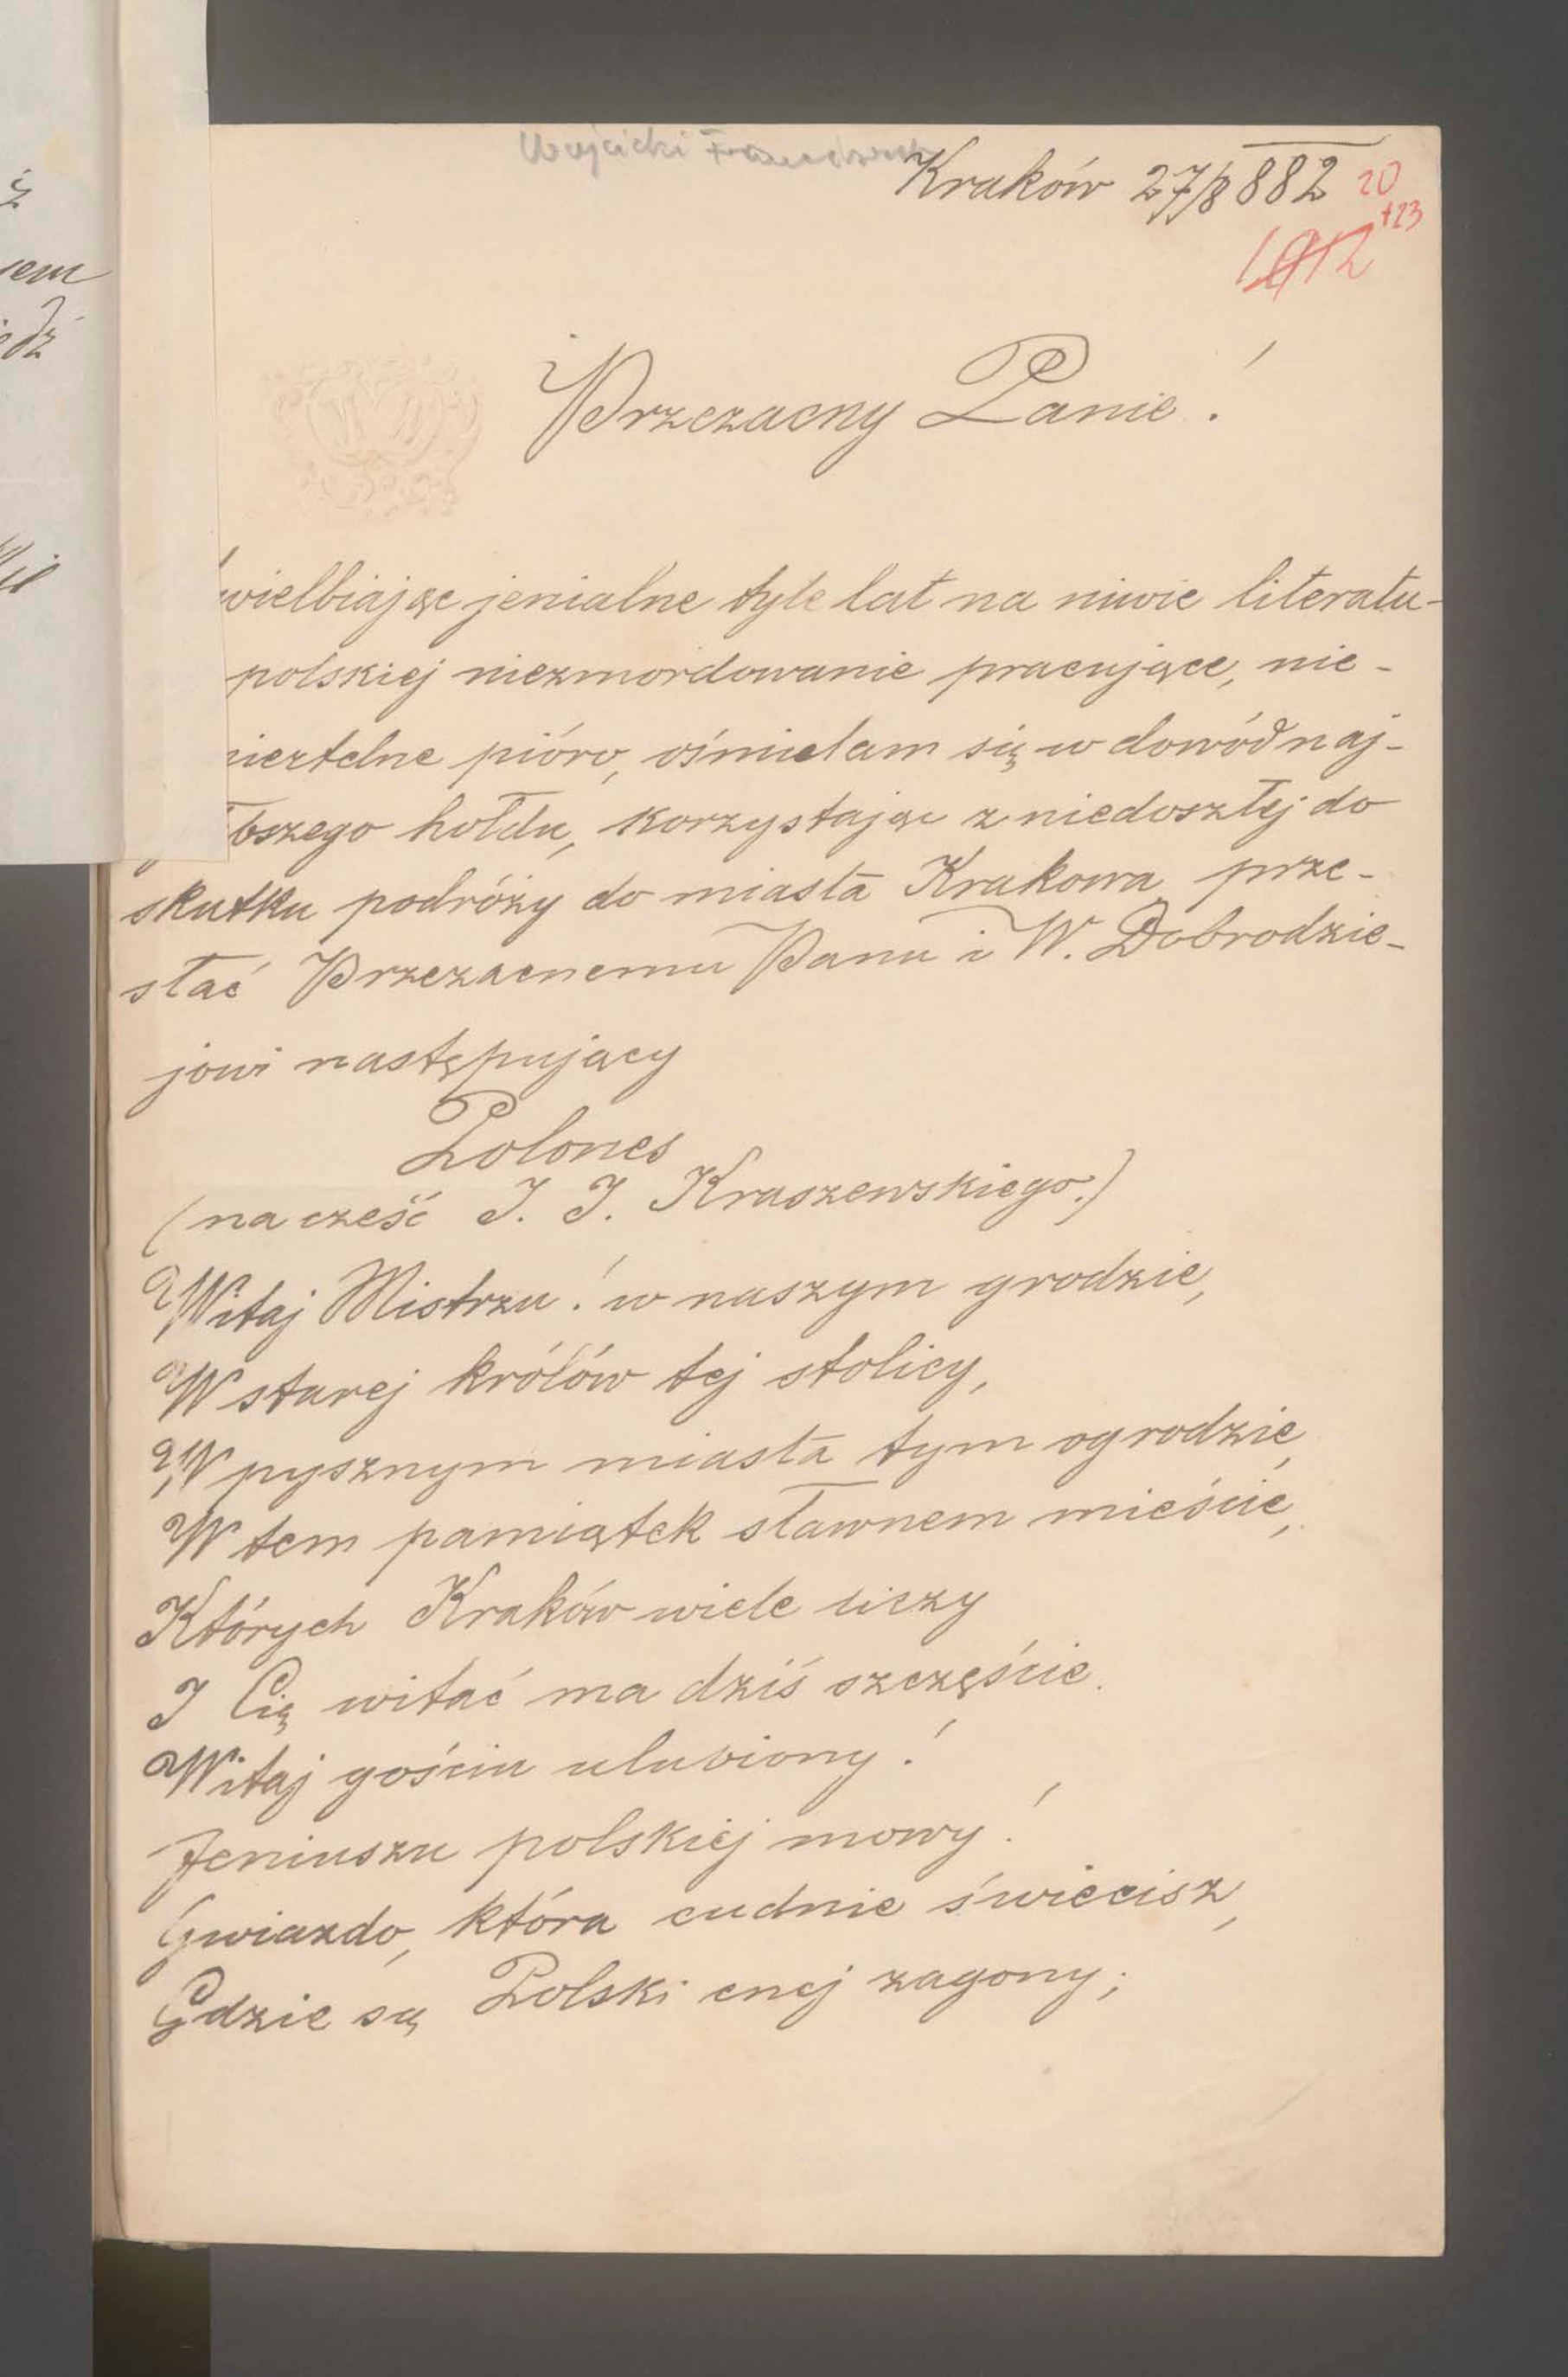 Wójcicki Franciszek
Kraków 27/8 882
20
+23
Przezacny Panie!
wielbiając jenialne tyle lat na niwie literatu-
polskiej niezmordowanie pracujące, nie-
iertelne pióro, ośmielam się w dowód naj-
bszego hołdu, korzystając z niedoszłej do
skutku podróży do miasta Krakowa prze-
słać Przezacnemu Panu i W. Dobrodzie-
jowi następujacy
Polones
(na cześć J. I. Kraszewskiego.)
Witaj Mistrzu! w naszym grodzie,
W starej królów tej stolicy,
W pysznym miasta tym ogrodzie,
W tem pamiątek sławnem mieście,
Których Kraków wiele liczy
I Cię witać ma dziś szczęście.
Witaj gościu ulubiony!
Jeniuszu polskiej mowy!
Gwiazdo, która cudnie świecisz,
Gdzie są Polski cnej zagony;